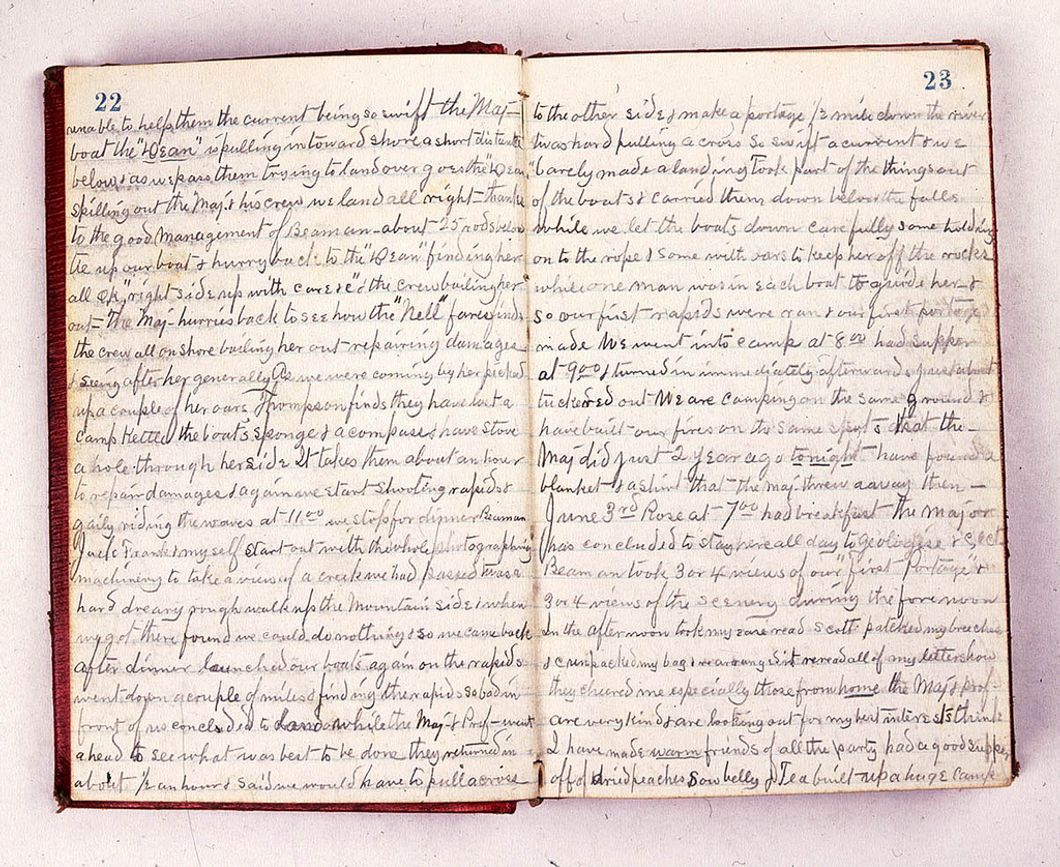 22
unable to help them the current being so swift the Maj—
boat the "Dean" is pulling in toward shore a short distance
below & as we pass them trying to land over goes the "Dean
spilling out the Maj. & his crew we land all right thanks
to the good management of Beaman about 25 rods below
tie up our boat & hurry back to the "Dean" finding her
all OK, right side up with care &c & the crew bailing her
out— The Maj hurries back to see how the "Nell" fares finds
the crew all on shore bailing her out repairing damages
& seeing after her generally As we were coming by her picked
up a couple of her oars. Thompson finds they have lost a
camp kettle the boats sponge & a compass & have stove
a hole through her side It takes them about an hour
to repair damages & again we start shooting rapids &
gaily riding the waves at 11 00 we stop for dinner Beaman
Jack Frank & myself start out with the whole photographing
machinery to take a view of a creek we had passed twas a
hard dreary rough walk up the Mountain side & when
we got there found we could do nothing & so we came back
after dinner launched our boats again on the rapids
went down a couple of miles & finding the rapids so bad in
front of us concluded to land while the Maj & Prof— went
ahead to see what was best to be done they returned in
about 1/2 an hour & said we would have to pull across
23
to the other side & make a portage 1/2 mile down the river
twas hard pulling across so swift a current & we
barely made a landing Took part of the things out
of the boats & carried them down below the falls
while we let the boats down carefully some holding
on to the rope & some with oars to keep her off the rocks
while one man was in each boat to guide her &
so our first rapids were ran & our first portage
made We went into camp at 8.00 had supper
at 9 00 & turned in immediately afterwards just about
tuckered out We are camping on the same ground &
have built our fires on the same spots that the
Maj did just 2 year ago tonight— have found a
blanket & a shirt that the maj threw away then—
June 3rd Rose at 7 00 had breakfast The Major
has concluded to stay here all day to geologise &
Beaman took 3 or 4 views of our "first Portage" &
3 or 4 views of the scenery during the forenoon
In the afternoon took my ease read Scott patched my breeches
& c unpacked my bag & rearranged it reread all of my letters how
they cheered me especially those from home the Maj & Prof—
are very kind & are looking out for my best interests think
I have made warm friends of all the party had a good supper
off of dried peaches sow belly & Tea built up a huge camp